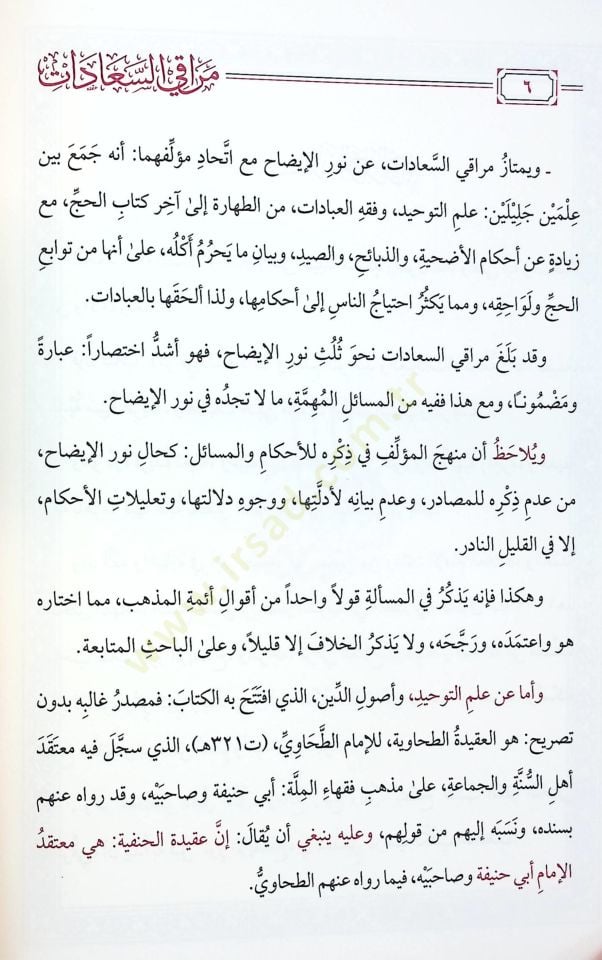 مَرَاقِي السَّعَادَات
٦
ـ ويمتازُ مراقي السَّعادات، عن نورِ الإيضاح مع اتَّحادِ مؤلِّفهما: أنه جَمَعَ بين
عِلْمَيْن جَلِيْلَيْن: علمِ التوحيد، وفقهِ العبادات، من الطهارة إلىٰ آخِرِ كتابِ الحجِّ، مع
زيادةٍ عن أحكام الأضحيةِ، والذبائحِ، والصيدِ، وبيانِ ما يَحرُمُ أَكْلُه، علىٰ أنها من توابعِ
الحجِّ ولَوَاحِقِه، ومما يَكثُرُ احتياجُ الناسِ إلىٰ أحكامِها، ولذا ألحَقَها بالعبادات.
وقد بَلَغَ مراقي السعادات نحوَ ثُلُثِ نورِ الإيضاح، فهو أشدُّ اختصاراً: عبارةً
ومَضْمُوناً، ومع هذا ففيه من المسائلِ المُهِمَّةِ، ما لا تجدُه في نور الإيضاح.
ويُلاحَظُ أن منهجَ المؤلِّفِ في ذِكْرِه للأحكامِ والمسائل: كحالِ نور الإيضاح،
من عدمِ ذِكْرِه للمصادر، وعدمِ بيانِه لأدلَّتِها، ووجوهِ دلالتها، وتعليلاتِ الأحكام،
إلا في القليلِ النادر.
وهكذا فإنه يَذكُرُ في المسألةِ قولاً واحداً من أقوالِ أئمةِ المذهب، مما اختاره
هو واعتمَدَه، ورَجَّحَه، ولا يَذكرُ الخلافَ إلا قليلاً، وعلىٰ الباحثِ المتابعة.
وأما عن علمِ التوحيدِ، وأصولِ الدِّين، الذي افتَتَحَ به الكتابَ: فمصدرُ غالبِه بدون
تصريح: هو العقيدةُ الطحاوية، للإمام الطَّحَاوِيِّ، (ت٣٢١هـ)، الذي سجَّلَ فيه معتقَدَ
أهلِ السُّنَّةِ والجماعةِ، علىٰ مذهبِ فقهاءِ المِلَّة: أبي حنيفة وصاحبَيْه، وقد رواه عنهم
بسنده، ونَسَبَه إليهم من قولِهم، وعليه ينبغي أن يُقالَ: إنَّ عقيدةَ الحنفية: هي معتقدُ
الإمامِ أبي حنيفة وصاحبَيْه، فيما رواه عنهم الطحاويُّ.
www.irsad.com.tr